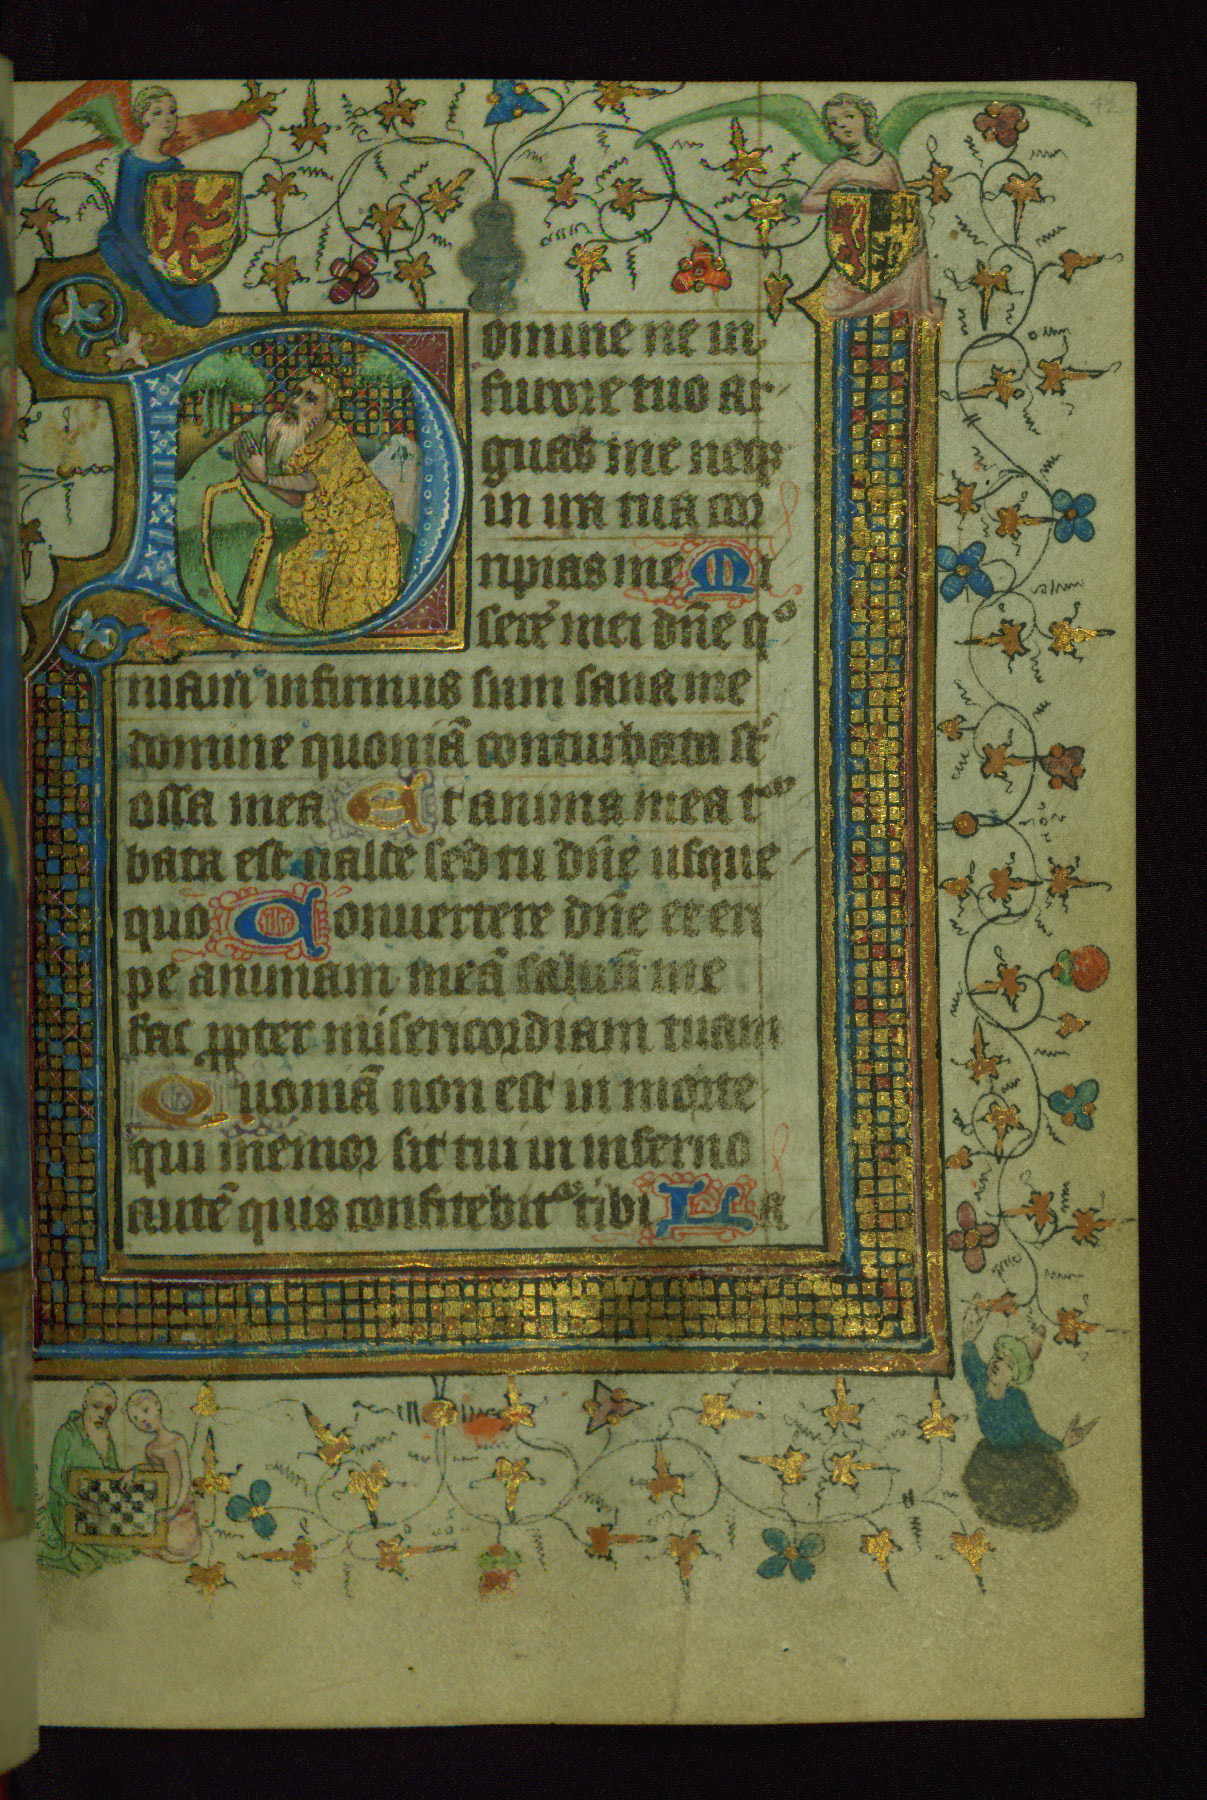 42
Domine ne in
furore tuo ar
guas me neqꝫ
in ira tua cor
ripias me Mi
sere᷑ mei dn̄e qͦ
niam infirmus sum sana me
domine quoniā conturbata st̄
ossa mea Et anima mea tᵘʳ
bata est ualde sed tu dn̄e usque
quo Conuertere dn̄e et eri
pe animam meā saluū me
fac ꝓpter misericordiam tuam
Quoniā non est in morte
qui memor sit tui in inferno
autē quis confitebitᵘʳ tibi La